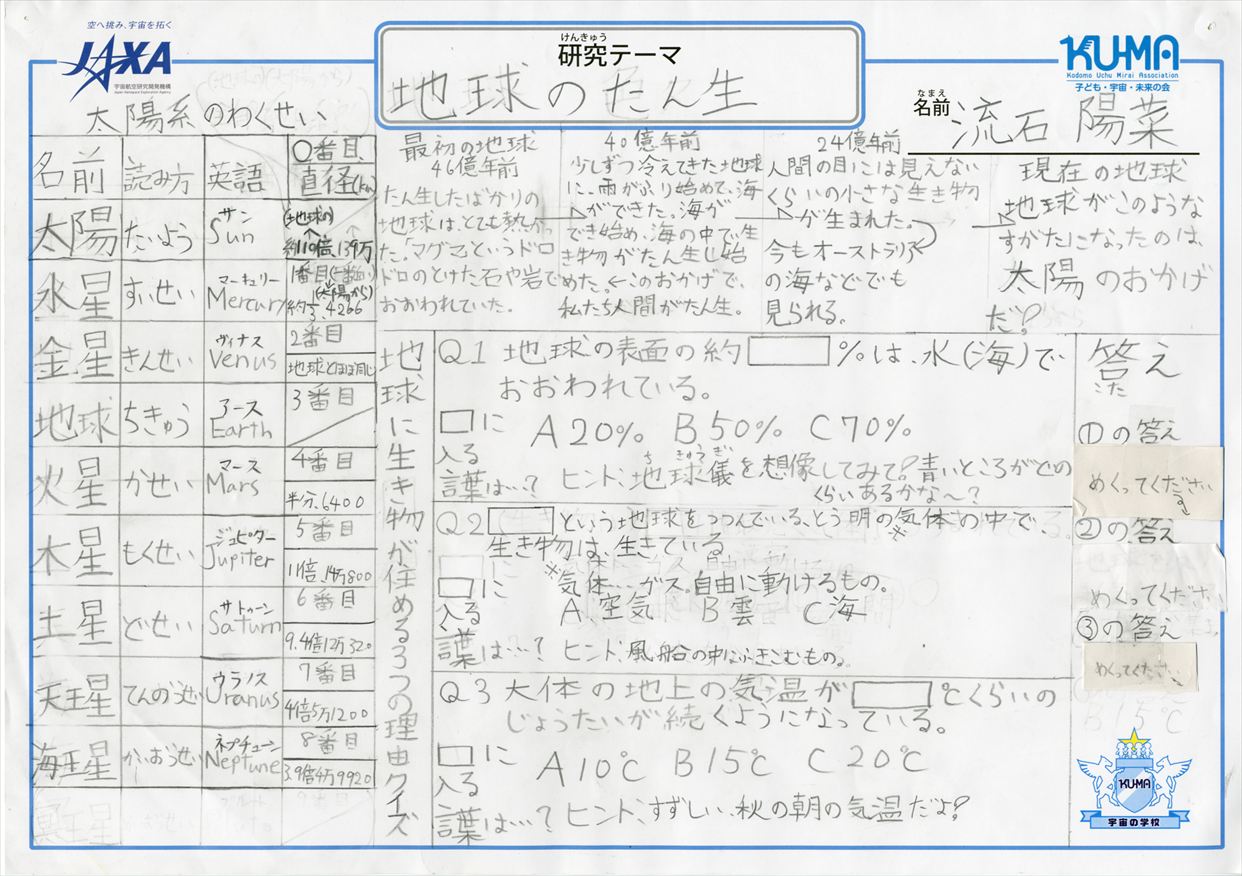 空へ挑み、宇宙を拓く
JAXA
宇宙航空研究開発機構
Japan Aerospace Exploration Agency
けんきゅう
研究テーマ
地球のたん生
KU-MA
Kodomo Uchu Mirai Association
子ども・宇宙・未来の会
なまえ
名前 流石 陽菜
太陽系のわくせい
名前 読み方 英語 〇番目 直径(km)
太陽 たいよう サン Sun (地球の) 約110倍、139万
水星 すいせい マーキュリー Mercury 1番目 (太陽から) 4266
金星 きんせい ヴィナス Venus 2番目 地球とほぼ同じ
地球 ちきゅう アース Earth 3番目
火星 かせい マース Mars 4番目 半分、6400
木星 もくせい ジュピター Jupiter 5番目 11倍、14万800
土星 どせい サトゥーン Saturn 6番目 9.4倍12万320
天王星 てんのう世い ウラノス Uranus 7番目 4倍5万1200
海王星 かいおう世い ネプチューン Neptune 8番目 3.9倍4万9920
冥王星
最初の地球
46億年前
たん生したばかりの
地球は、とても熱かっ
た。「マグマ」というドロ
ドロのとけた石や岩で
おおわれていた。
40億年前
少しずつ冷えてきた地球
に、雨がふり始めて、海
ができた。海が
でき始め、海の中で、生
き物がたん生し始
めた。←このおかげで、
私たち人間がたん生。
24億年前
人間の目には見えない
くらいの小さな生き物
が生まれた。
今もオーストラリア
の海などでも
見られる。
現在の地球
地球がこのような
すがたになったのは、
太陽のおかげ
だ!
地球に生き物が住める3つの理由クイズ
Q1 地球の表面の約□%は、水(海)で
おおわれている。
□に入る言葉は…?
A 20% B 50% C 70%
ヒント、地球儀を想像してみて!青いところがどの
ち きゅう ぎ
くらいあるかな〜?
Q2 □という地球をつつんでいる、とう明の気体の中で、
※
生き物は、生きている
※気体…ガス。自由に動けるもの。
□に入る言葉は…?
A、空気 B 雲 C 海
ヒント、風船の中にふきこむもの。
Q3 大体の地上の気温が□℃くらいの
じょうたいが続くようになっている。
□に入る言葉は…?
A 10℃ B 15℃ C 20℃
ヒント、すずしい、秋の朝の気温だよ!
答え
こた
①の答え
めくってください
②の答え
めくってください
③の答え
めくってください
B 15℃
KU-MA
宇宙の学校